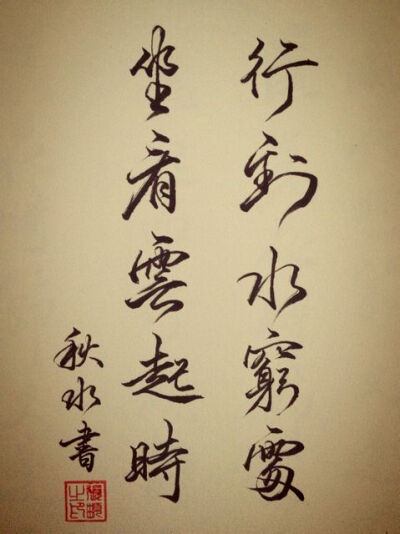 行到水窮處
坐看雲起時
秋水書